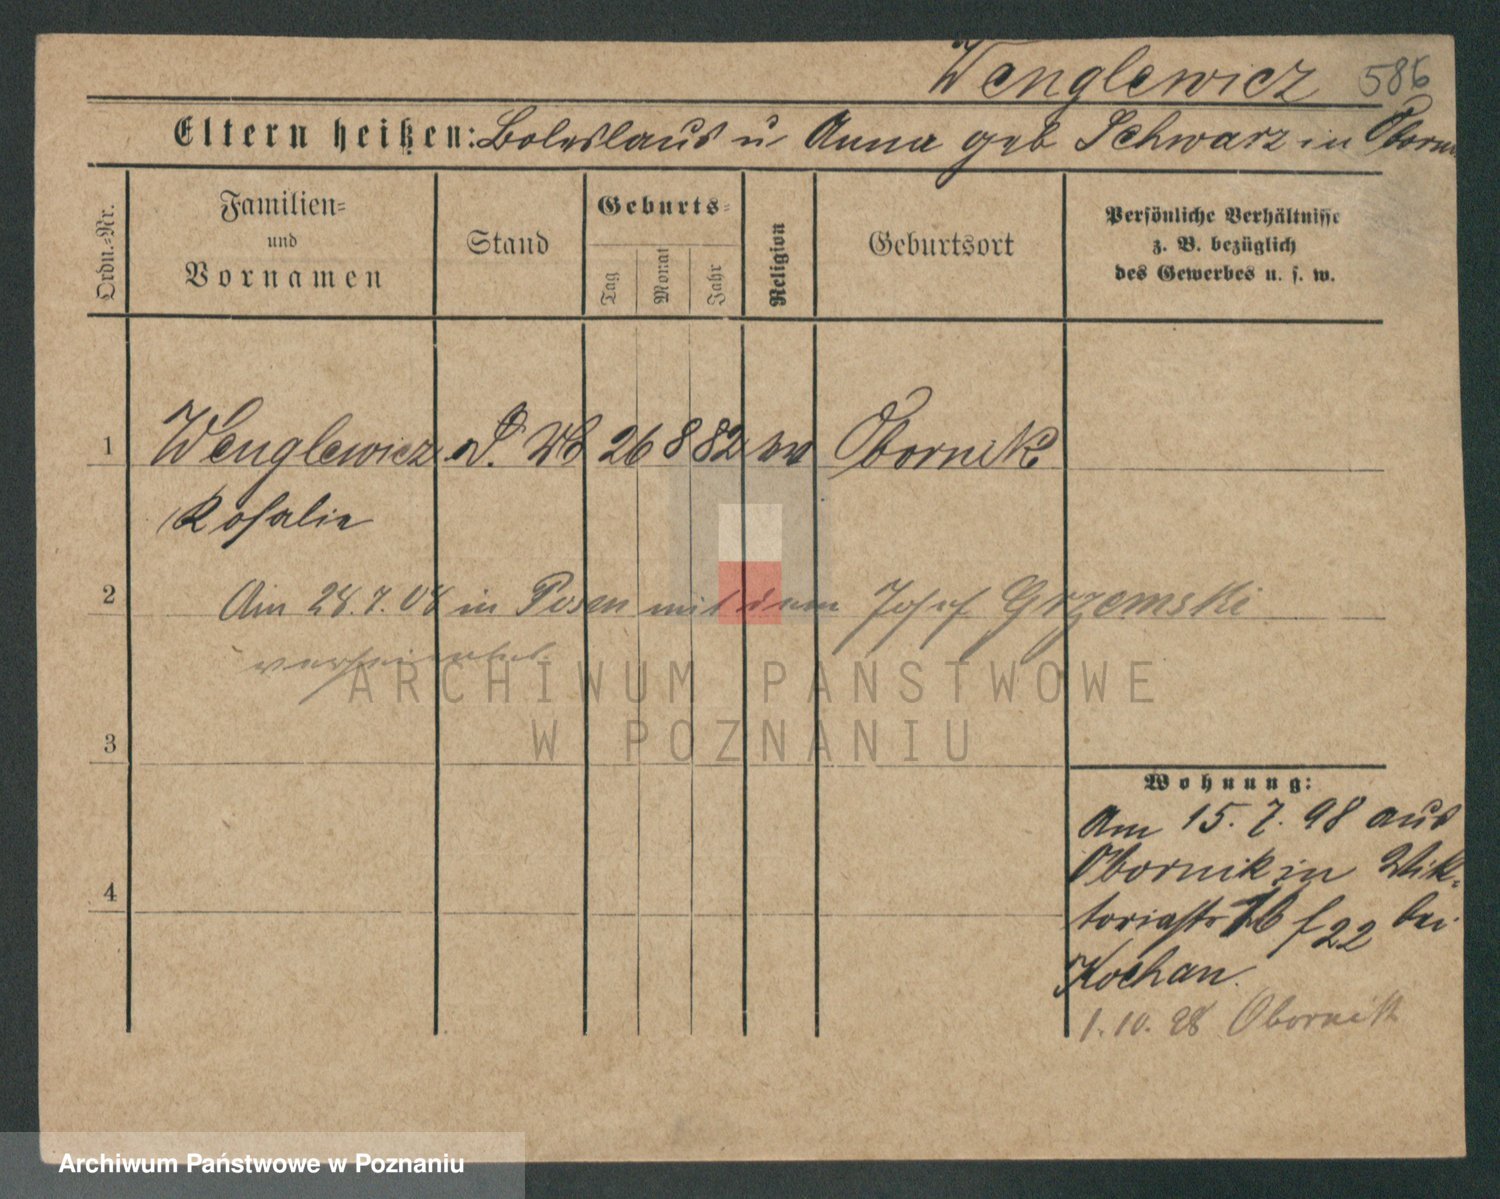 Wenglewicz 586
Eltern heißen: Boleslaus u Anna geb Schwarz in Obornik
Ordn.-Nr.
Familien-
und
Vornamen
Stand
Geburts-
Tag
Monat
Jahr
Religion
Geburtsort
Persönliche Verhältnisse
z. B. bezüglich
des Gewerbes u. s. w.
1 Wenglewicz 26 8 82 Obornik
Rosalie
2 Am 28.7.08 in Posen mit dem Josef Grzemski
verheiratet
ARCHIWUM PAŃSTWOWE
W POZNANIU
3
4
Wohnung:
Am 15.7.98 aus
Obornik in Wik-
toriastr f 22 bei
Kochan.
1.10.98 Obornik
Archiwum Państwowe w Poznaniu